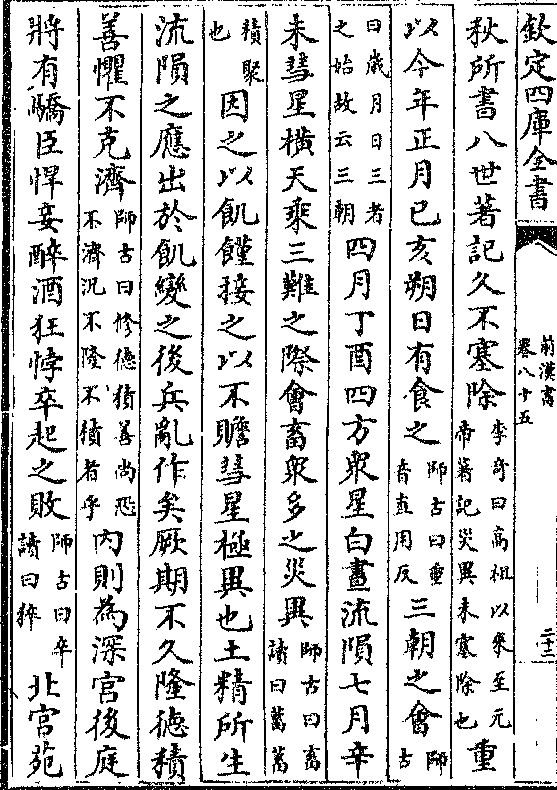 欽定四庫全書
前漢書
卷八十五
二十二
秋所書八世著記久不塞除李奇曰高祖以來至元帝著記災異未塞除也重
以今年正月己亥朔日有食之師古曰重音直用反三朝之會師古
曰歲月日三者之始故云三朝四月丁酉四方衆星白晝流隕七月辛
未彗星橫天乘三難之際會畜衆多之災異師古曰畜讀曰蓄蓄
積聚也因之以飢饉接之以不贍彗星極異也土精所生
流隕之應出於飢變之後兵亂作矣厥期不久隆德積
善懼不克濟師古曰修德積善尚恐不濟況不隆不積者乎内則為深宮後庭
將有驕臣悍妾醉酒狂悖卒起之敗師古曰卒讀曰猝北宮苑